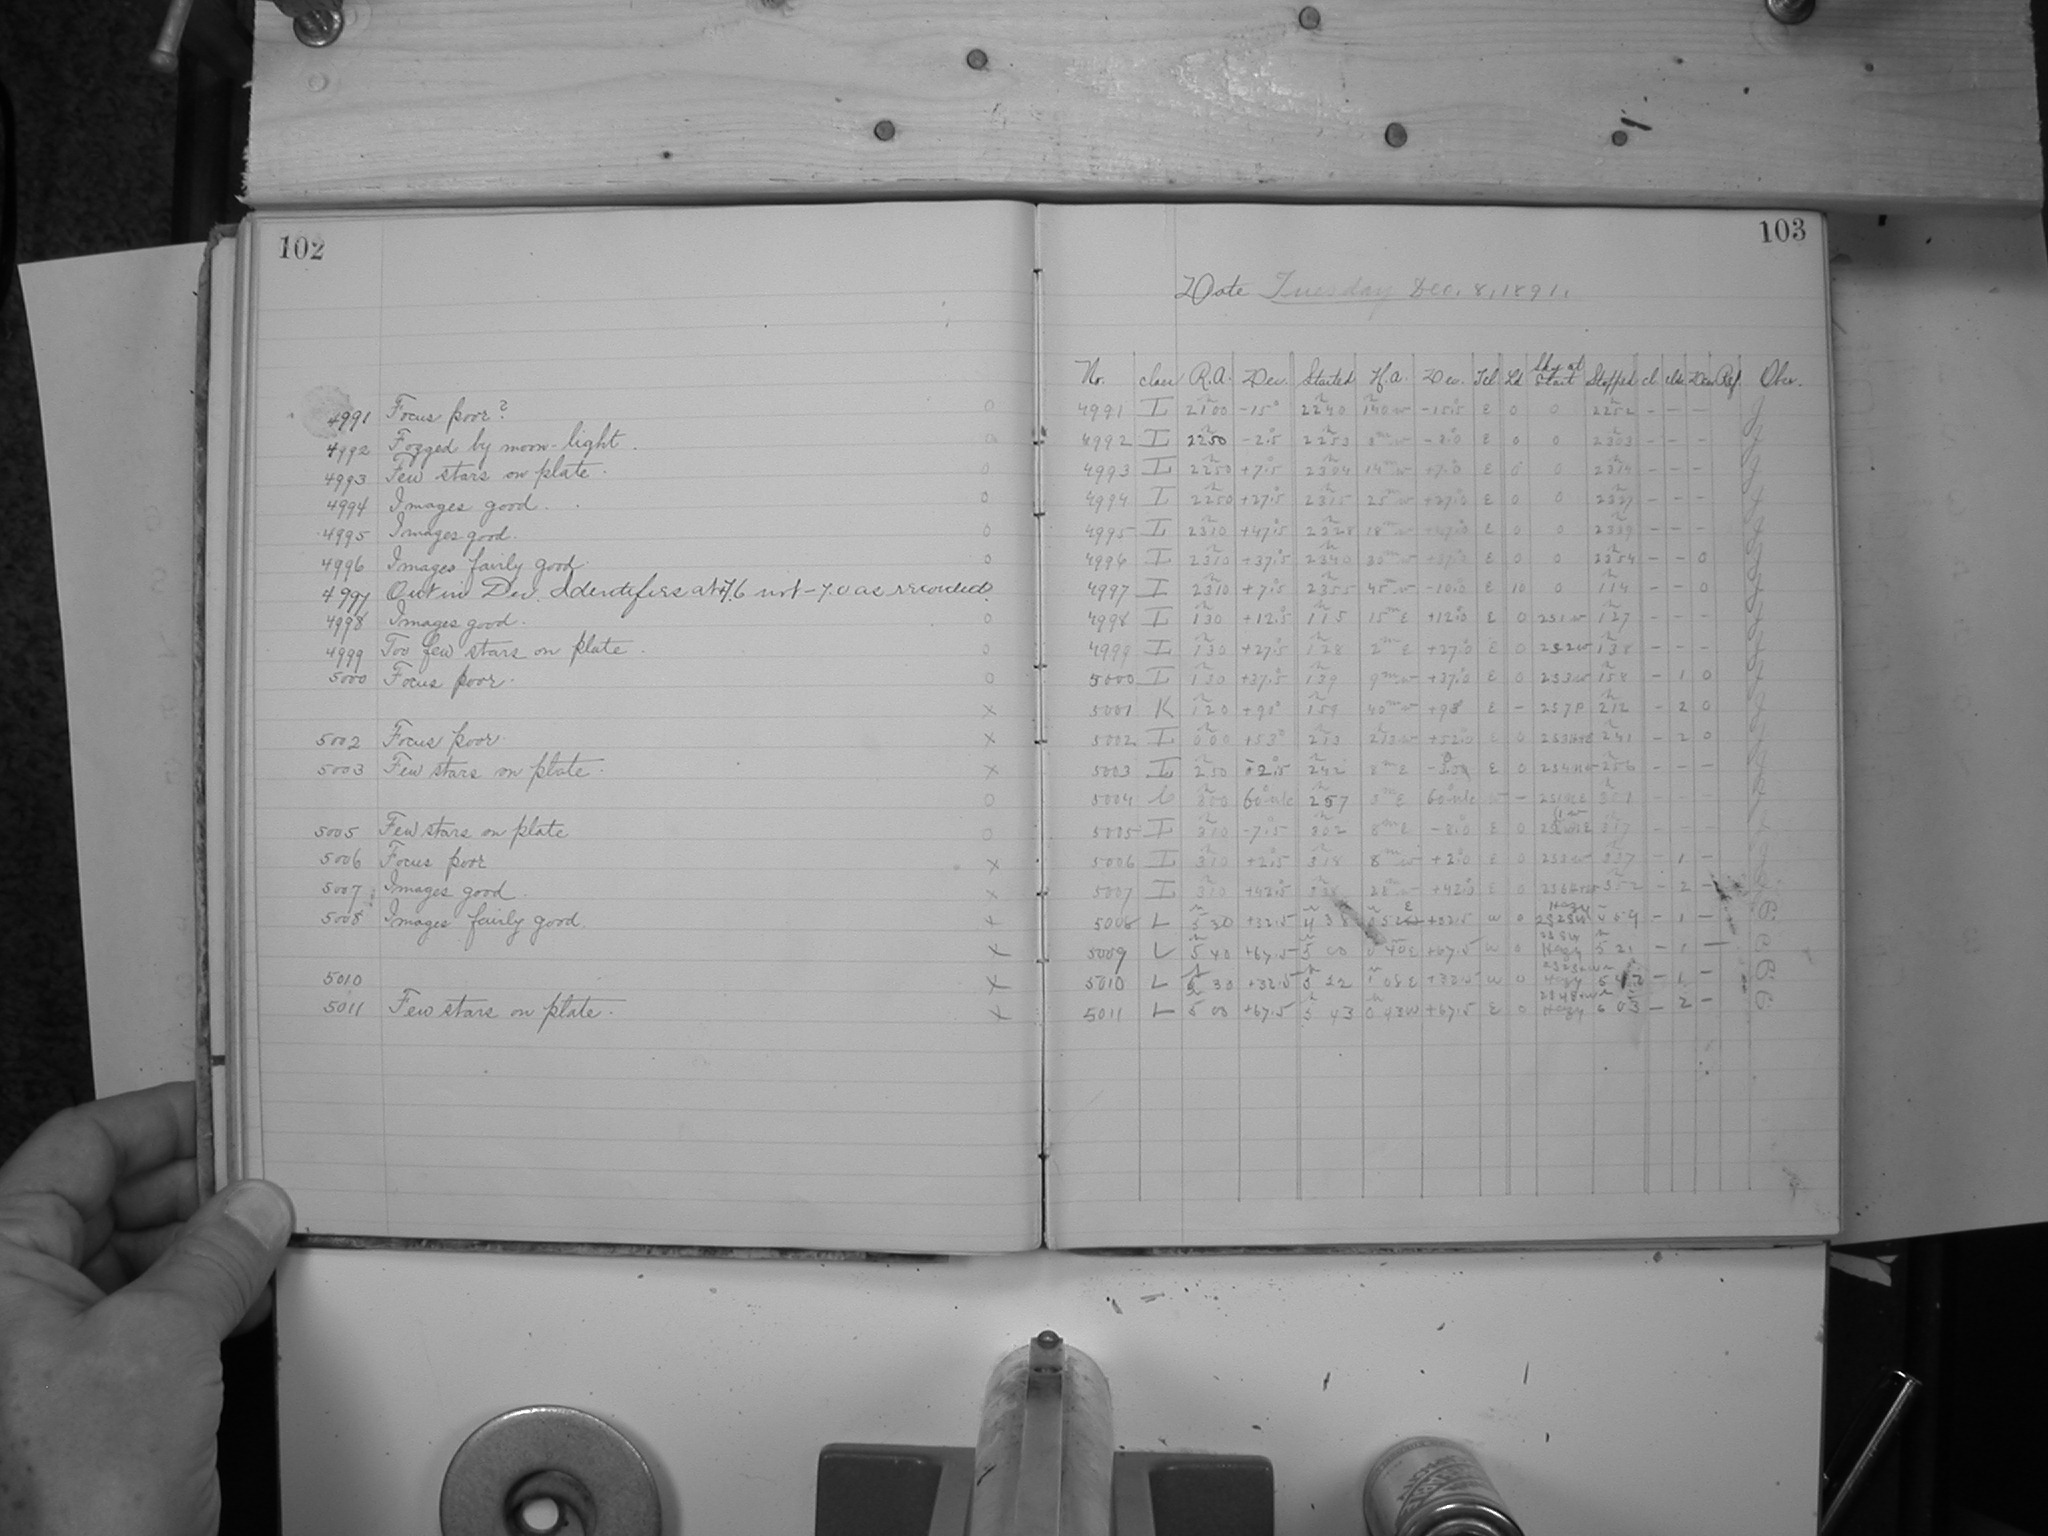 102
4991 Focus poor? 0
4992 Fogged by moon-light. 0
4993 Few stars on plate. 0
4994 Images good. 0
4995 Images good. 0
4996 Images fairly good. 0
4997 Out in Dec. Identifies at +7.6 not -7.0 as recorded. 0
4998 Images good. 0
4999 Too few stars on plate. 0
5000 Focus poor. 0
X
5002 Focus poor. X
5003 Few stars on plate. X
0
5005 Few stars on plate 0
5006 Focus poor X
5007 Images good. X
5008 Images fairly good. X
X
5010 X
5011 Few stars on plate. X
103
Date Tuesday Dec. 8, 1891.
No. class R.A. Dec. Started H.A. Dec. Tel. Ld Sky at Start Stopped cl clk Dew Ref. Obsr.
4991 I 2100 -15° 2240 140 w -15.5 E 0 0 2252 - - -
4992 I 2250 -2.5 2253 3m w E 0 0 2303 - - -
4993 I 2250 +7.5 2304 14m w +7.0 E 0 0 2314 - - -
4994 I 2250 +27.5 2315 25m w +27.0 E 0 0 2327 - - -
4995 I 2310 +47.5 2328 18m w +47.0 E 0 0 2339 - - -
4996 I 2310 +37.5 2340 30m w +37.0 E 0 0 2354 - - 0
4997 I 2310 +7.5 2355 45m w -10.0 E 10 0 114 - - 0
4998 I 130 +12.5 115 15m E +12.0 E 0 251w 127 - - -
4999 I 130 +27.5 128 2m E +27.0 E 0 252w 138 - - -
5000 I 130 +37.5 139 9m w +37.0 E 0 253w 158 - 1 0
5001 K 120 +90° 159 40m w +98 E - 257P 212 - 2 0
5002 I 000 +53° 213 213w +52.0 E 0 241 - 2 0
5003 I 250 +2.5 242 8m E E 0 256 - - -
5004 300 257 3m E w - 301 - - -
5005 I 310 -7.5 302 8m E -8.0 E 0 317 - - -
5006 I 310 +2.5 318 8m w +2.0 E 0 253w 337 - 1 -
5007 I 310 +42.5 338 28m w +42.0 E 0 352 - 2 -
5008 L 5 30 +32.5 4 38 0 52 E +32.5 w 0 Hazy 4 59 - 1 -
5009 L 5 40 +67.5 5 00 0 40E +67.5 w 0 Hazy 5 21 - 1 -
5010 L 6 30 +32.5 5 22 1 08E +32.5 w 0 Hazy 5 42 - 1 -
5011 L 5 00 +67.5 5 43 0 43w +67.5 E 0 Hazy 6 03 - 2 -